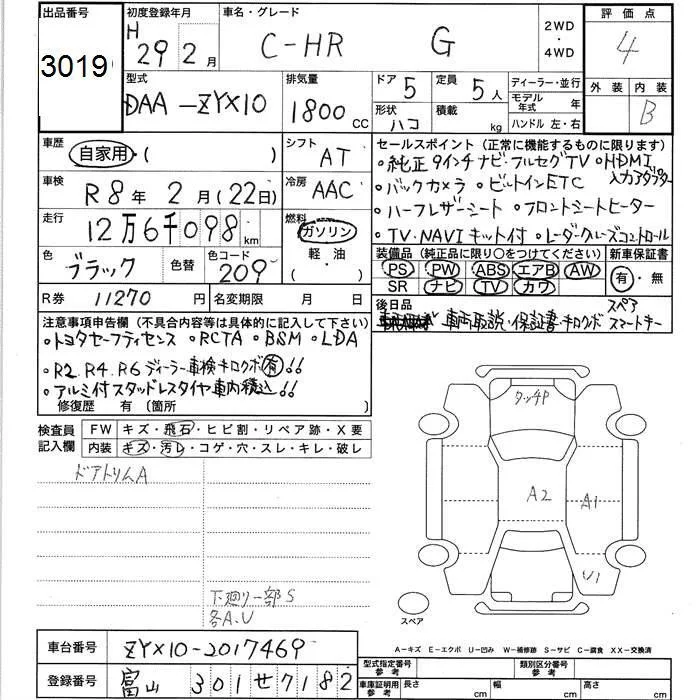 出品番号 初度登録年月 車名・グレード 2WD・4WD 評価点
3019 H 29 2 月 C-HR G 4
型式 排気量 ドア 5 定員 5 人 ディーラー・並行 外装 内装
DAA-ZYX10 1800 CC 形状 ハコ 積載 kg モデル年式 年 B
ハンドル 左・右
車歴 自家用・( ) シフト AT セールスポイント (正常に機能するものに限ります)
・純正9インチナビ・フルセグTV ・HDMI入力アダプター
車検 R8年 2月(22日) 冷房 AAC ・バックカメラ ・ビルトインETC
走行 12万6千098 km 燃料 ガソリン ・ハーフレザーシート ・フロントシートヒーター
軽油・( ) ・TV・NAVIキット付 ・レーダークルーズコントロール
色 ブラック 色替 色コード 209 装備品 (純正品に限り○をつけてください) 新車保証書
PS PW ABS エアB AW 有・無
SR ナビ TV カワ
R券 11270 円 名変期限 月 日 後日品
車両取説・保証書・キロクボ スペアスマートキー
注意事項申告欄 (不具合内容等は具体的に記入して下さい)
・トヨタセーフティセンス ・RCTA ・BSM ・LDA
・R2.R4.R6ディーラー車検キロクボ有!!
・アルミ付スタッドレスタイヤ車内積込!!
修復歴 有 (箇所 )
検査員記入欄 FW キズ・飛石・ヒビ割・リペア跡・X要
内装 キズ・汚レ・コゲ・穴・スレ・キレ・破レ
ドアトリムA
タッチP
A2 A1
U1
下廻り一部S
各A.U
スペア
A-キズ E-エクボ U-凹み W-補修跡 S-サビ C-腐食 XX-交換済
車台番号 ZYX10-2017469
型式指定番号 参考 類別区分番号 参考
登録番号 富山 301せ7182
車庫証明用 参考 長さ cm 幅 cm 高さ cm